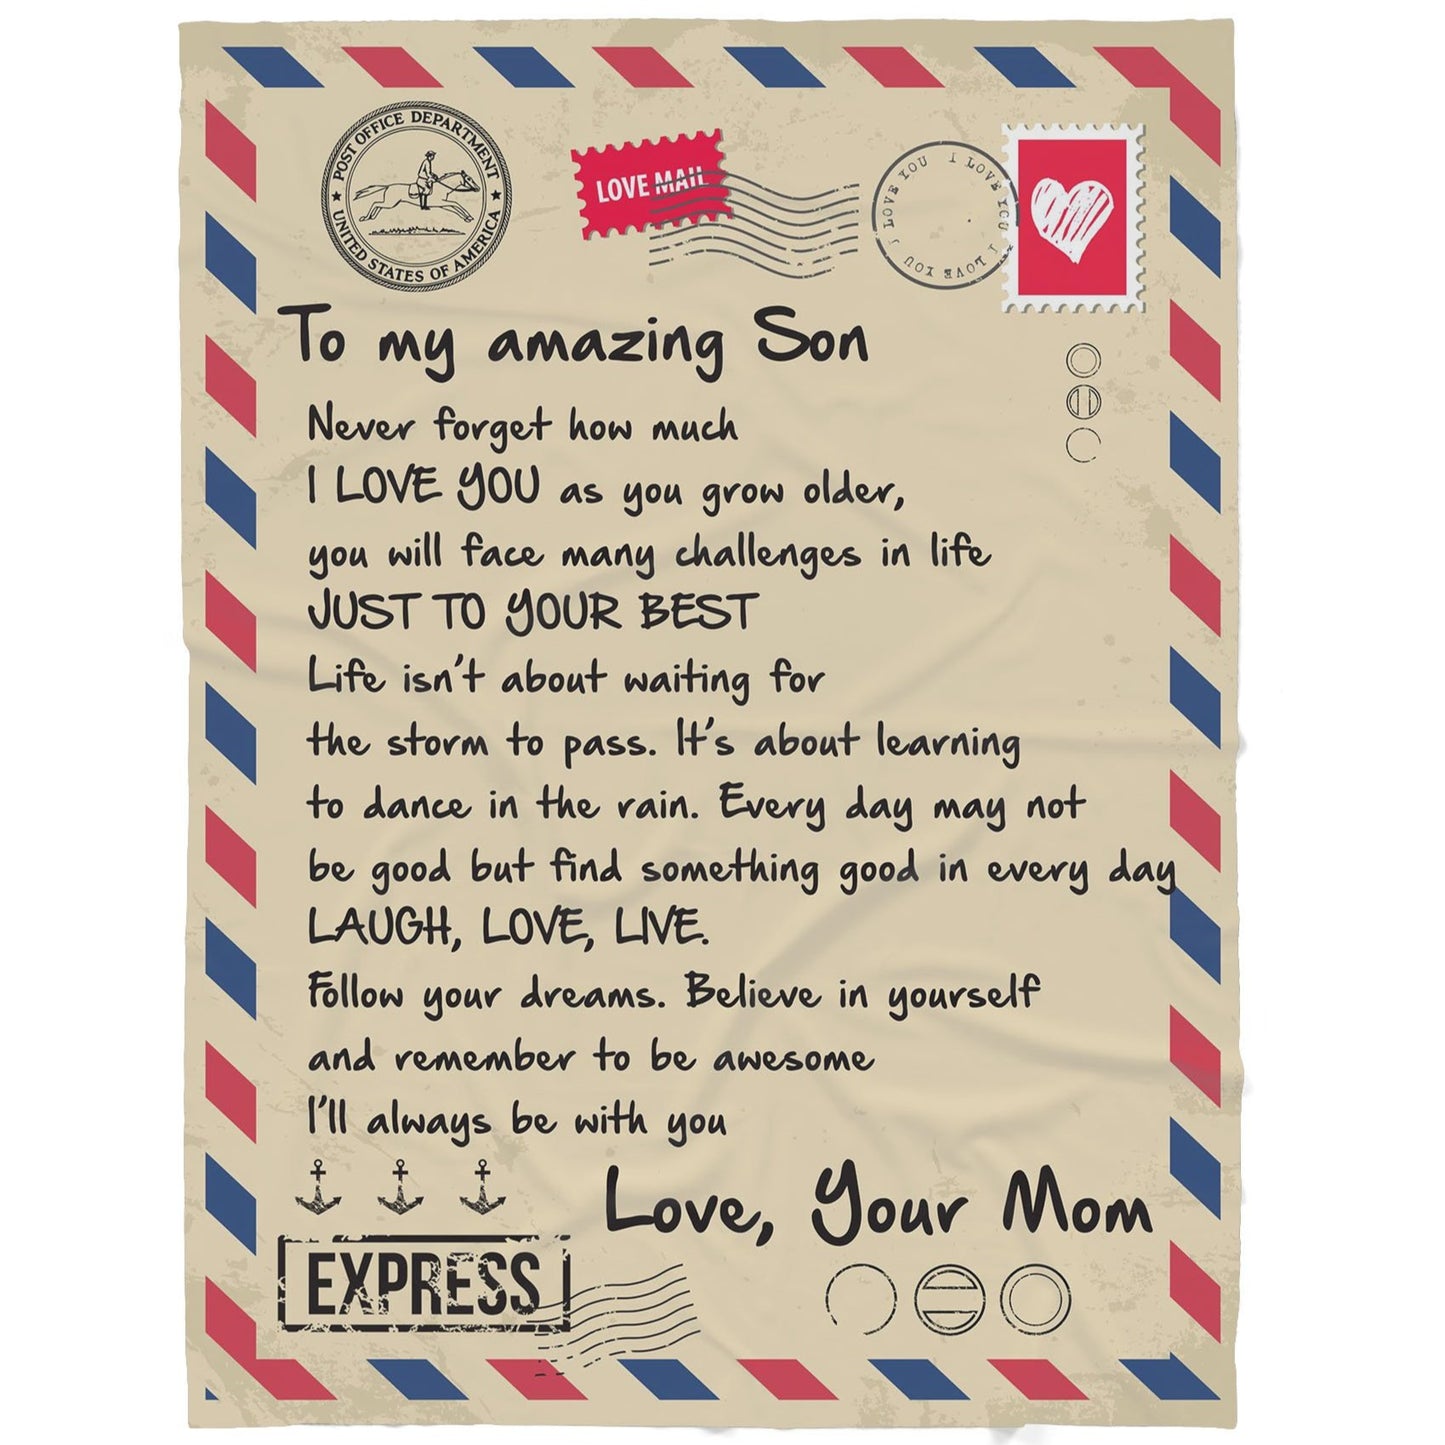 POST OFFICE DEPARTMENT
UNITED STATES OF AMERICA
LOVE MAIL
I LOVE YOU I LOVE YOU I LOVE YOU
To my amazing Son
Never forget how much
I LOVE YOU as you grow older,
you will face many challenges in life
JUST TO YOUR BEST
Life isn't about waiting for
the storm to pass. It's about learning
to dance in the rain. Every day may not
be good but find something good in every day
LAUGH, LOVE, LIVE.
Follow your dreams. Believe in yourself
and remember to be awesome
I'll always be with you
Love, Your Mom
EXPRESS